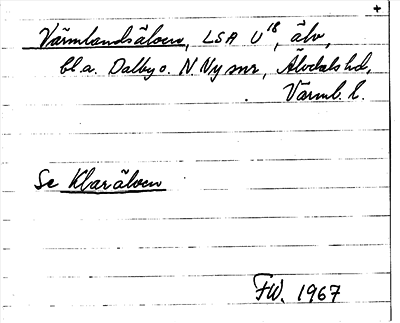 +
Värmlandsälven, LSA U18, älv,
bl a. Dalby o. N. Ny snr, Älvdals hd,
Värml. l.
Se Klarälven
FW. 1967